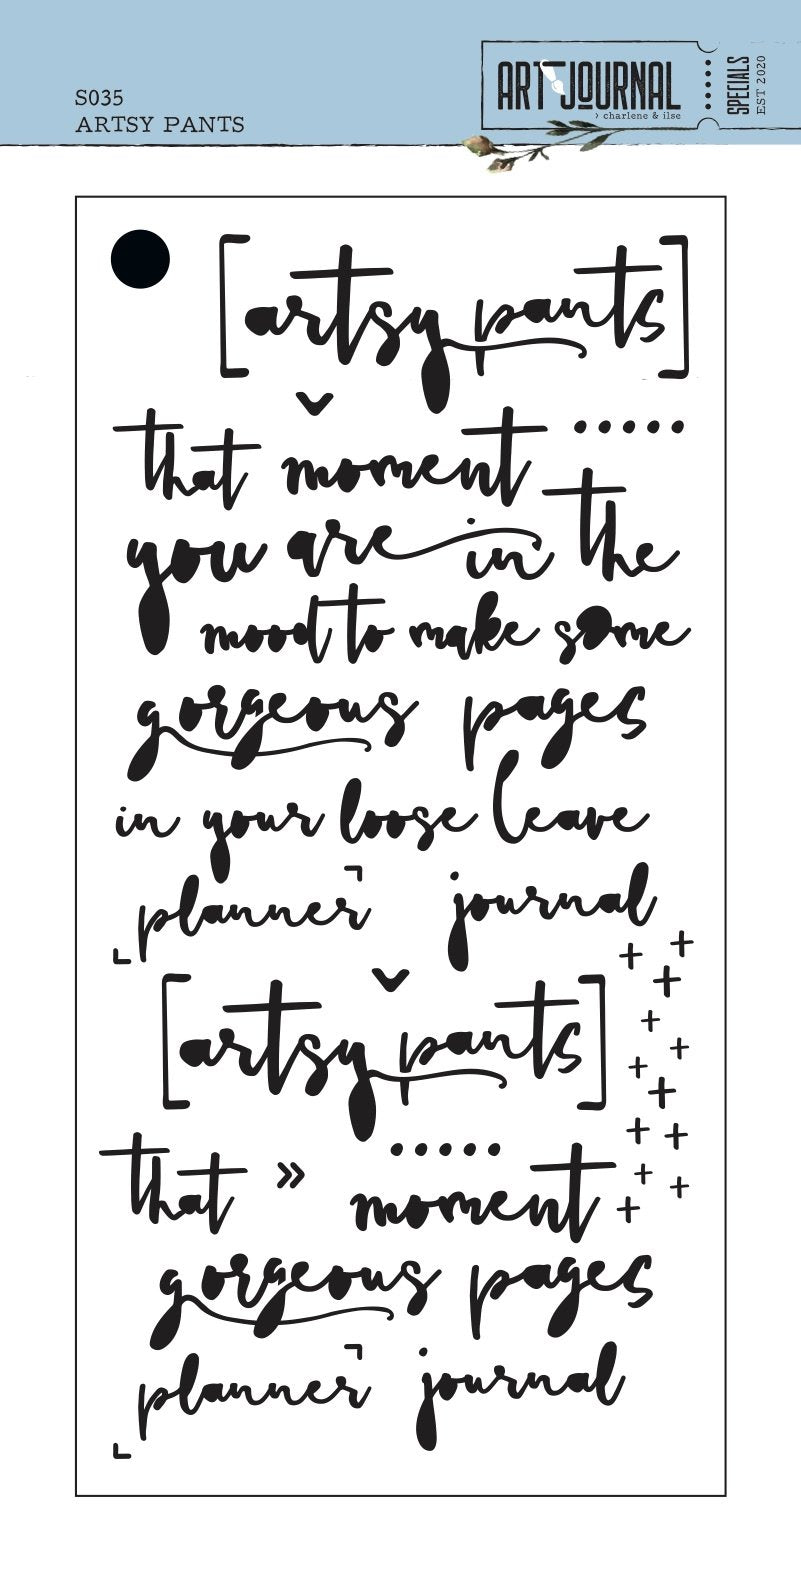 S035
ARTSY PANTS
ART JOURNAL
› charlene & ilse
SPECIALS
EST 2020
[artsy pants]
that moment
you are in the
mood to make some
gorgeous pages
in your loose leave
planner journal
[artsy pants]
that » moment
gorgeous pages
planner journal